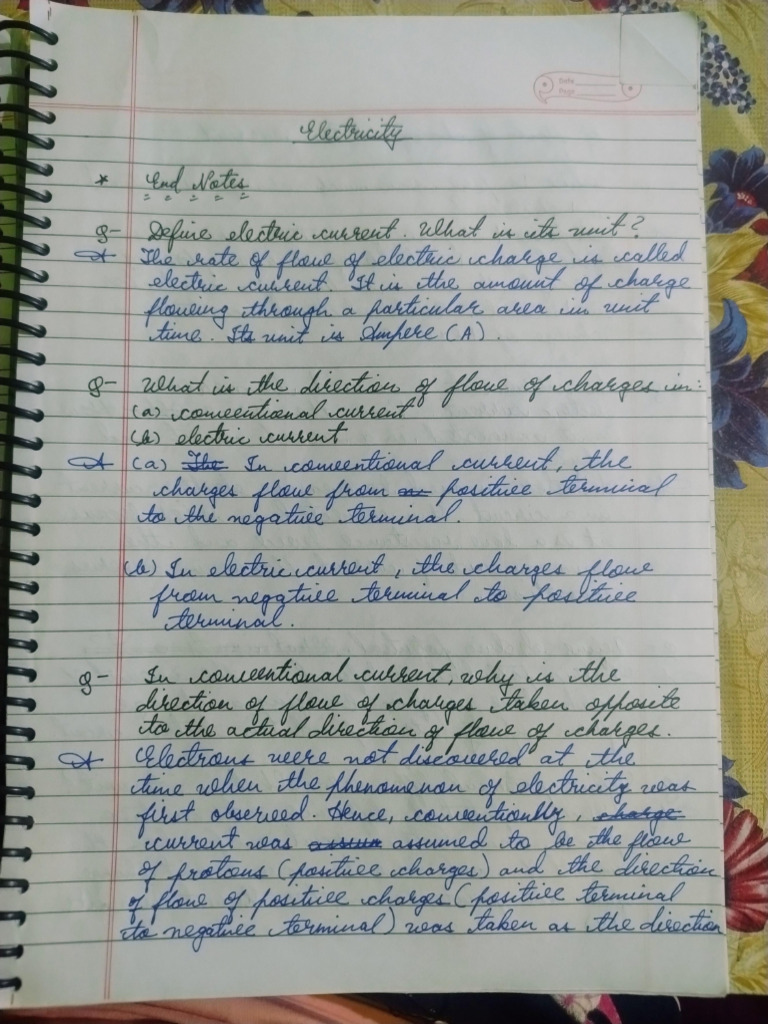 Date
Page
Electricity
* End Notes
Q- Define electric current. What is its unit?
A The rate of flow of electric charge is called
electric current. It is the amount of charge
flowing through a particular area in unit
time. Its unit is Ampere (A).
Q- What is the direction of flow of charges in:
(a) conventional current
(b) electric current
A (a) The In conventional current, the
charges flow from positive terminal
to the negative terminal.
(b) In electric current, the charges flow
from negative terminal to positive
terminal.
Q- In conventional current, why is the
direction of flow of charges taken opposite
to the actual direction of flow of charges.
A Electrons were not discovered at the
time when the phenomenon of electricity was
first observed. Hence, conventionally, charge
current was assum assumed to be the flow
of protons (positive charges) and the direction
of flow of positive charges (positive terminal
to negative terminal) was taken as the direction